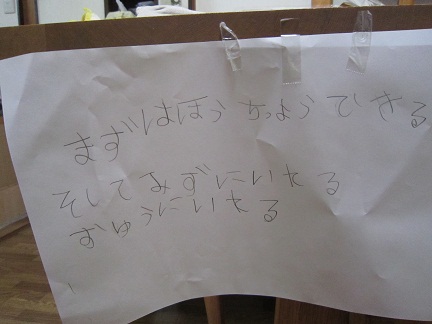 まずはほうちょうできる
そしてみずにいれる
おゆうにいれる